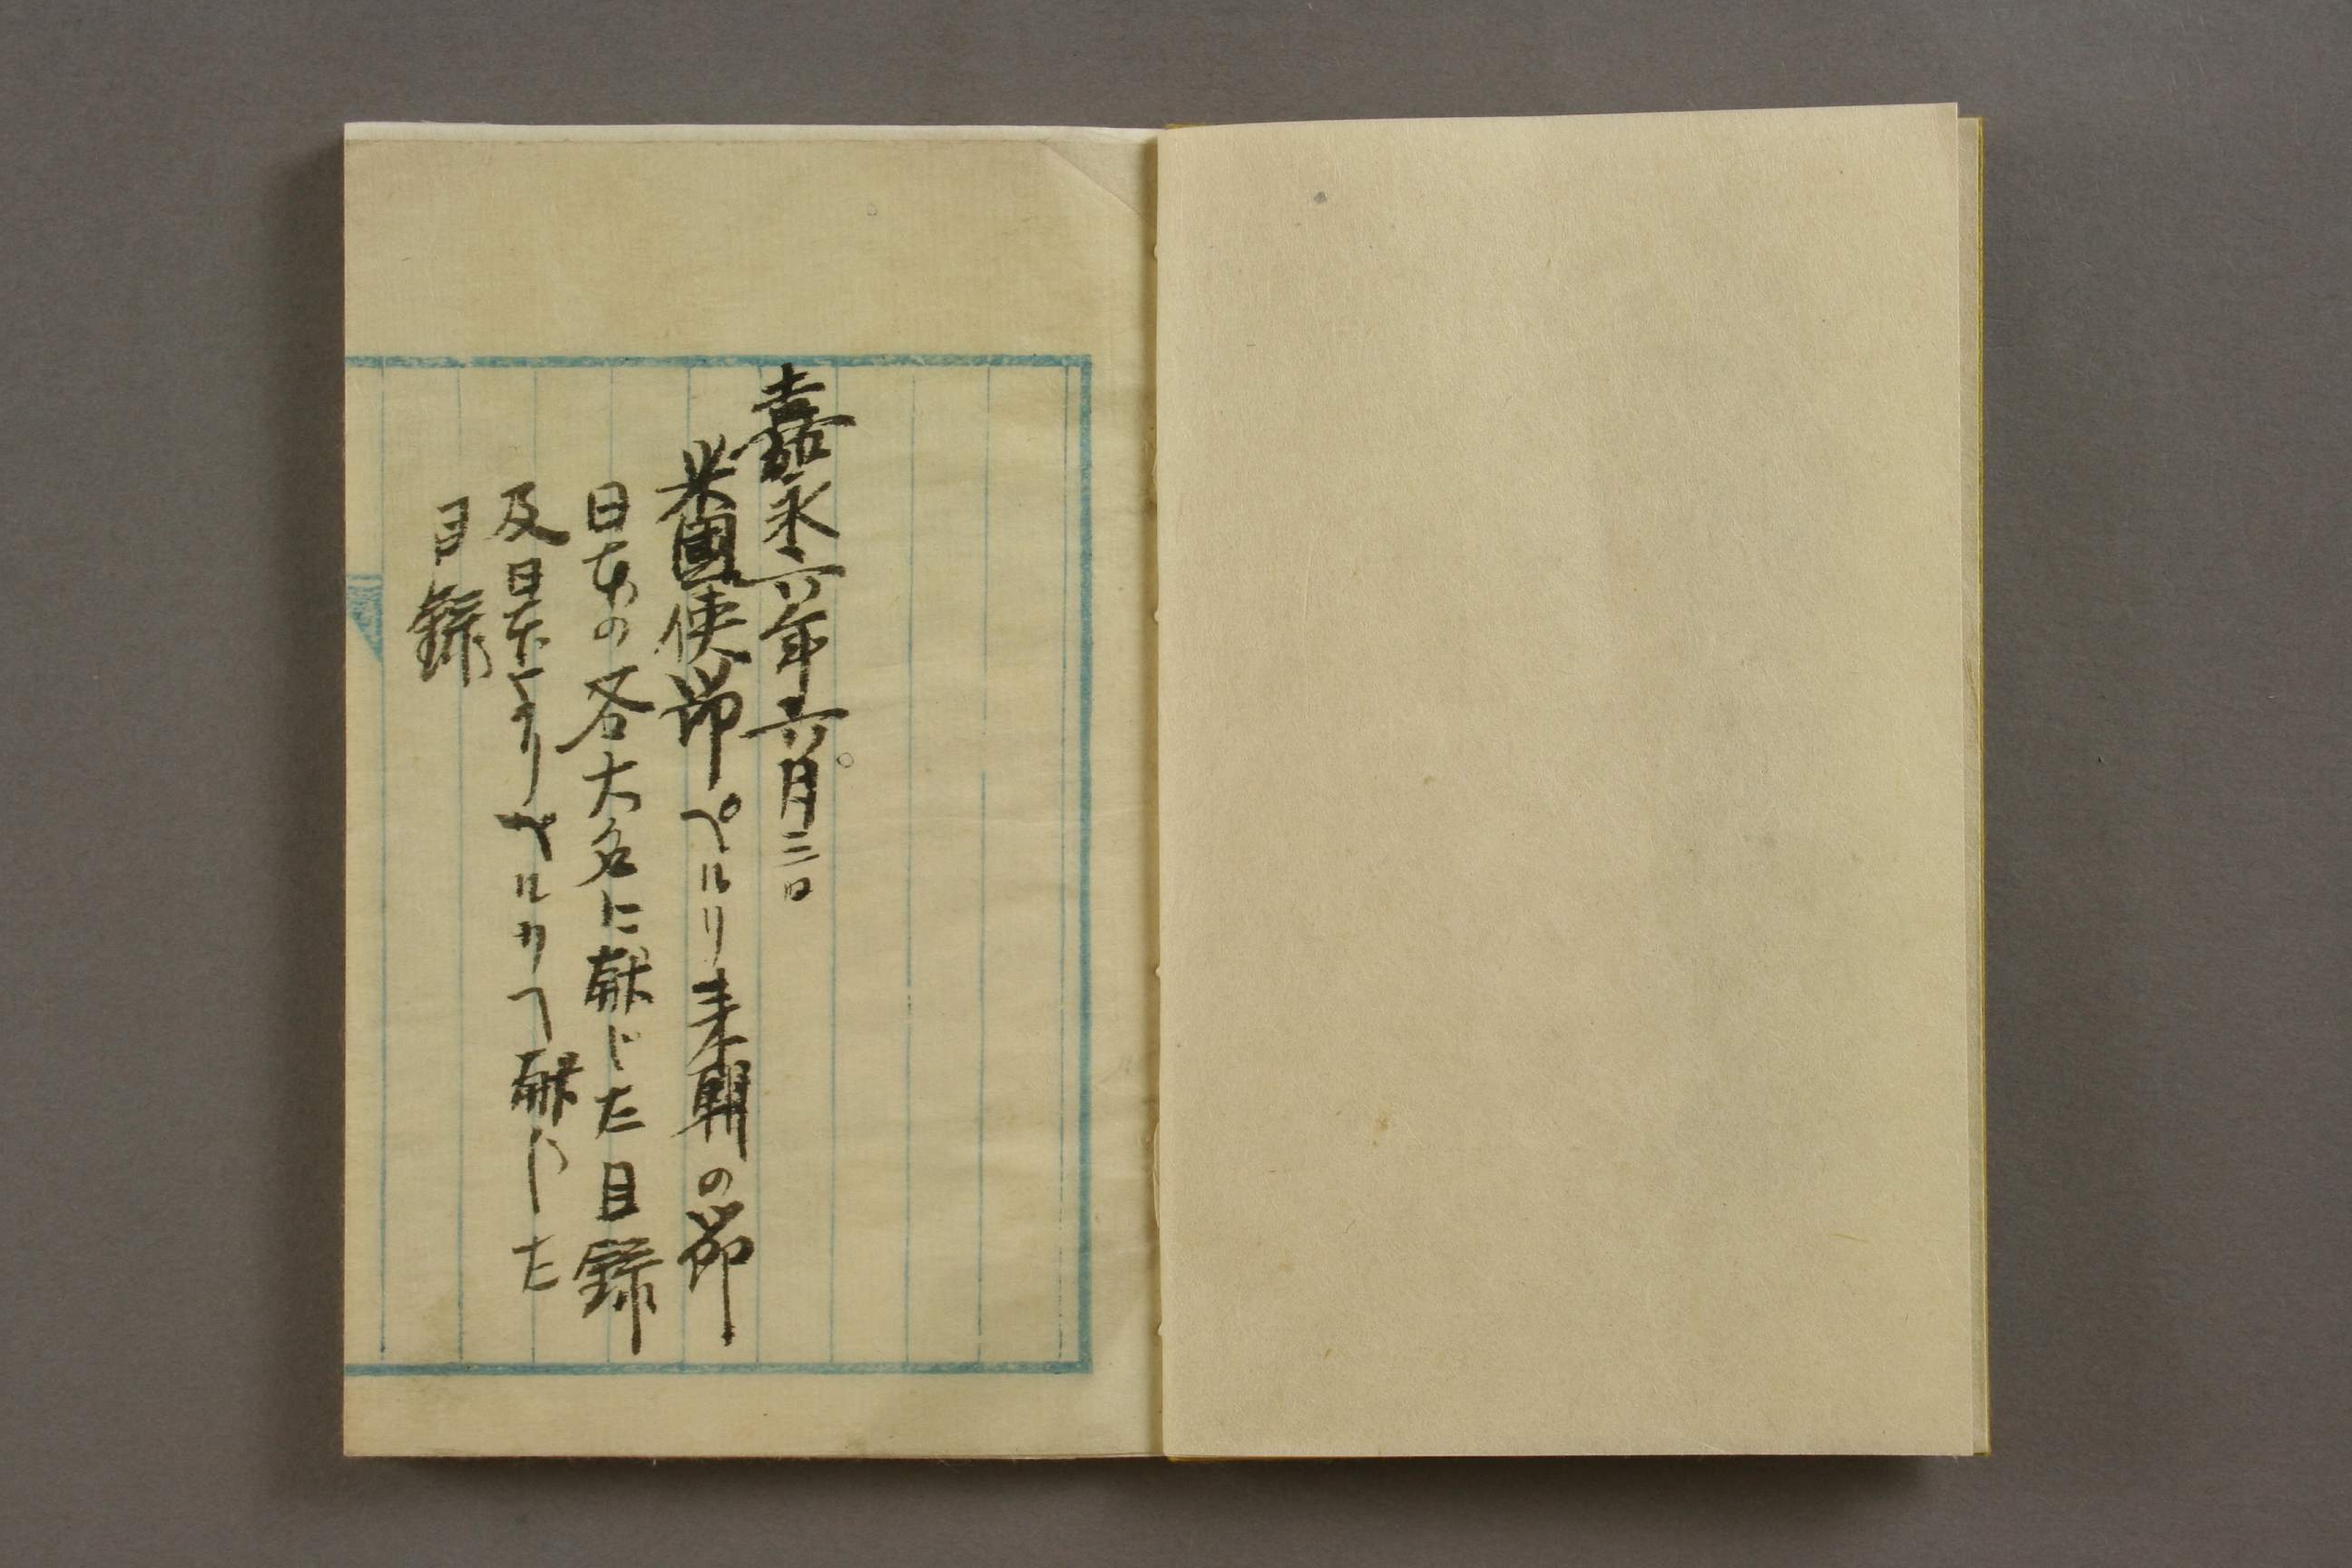 嘉永六年六月三日
米國使節ペルリ来朝の節
日本の各大名に献じた目録
及日本よりペルリへ献じた
目録